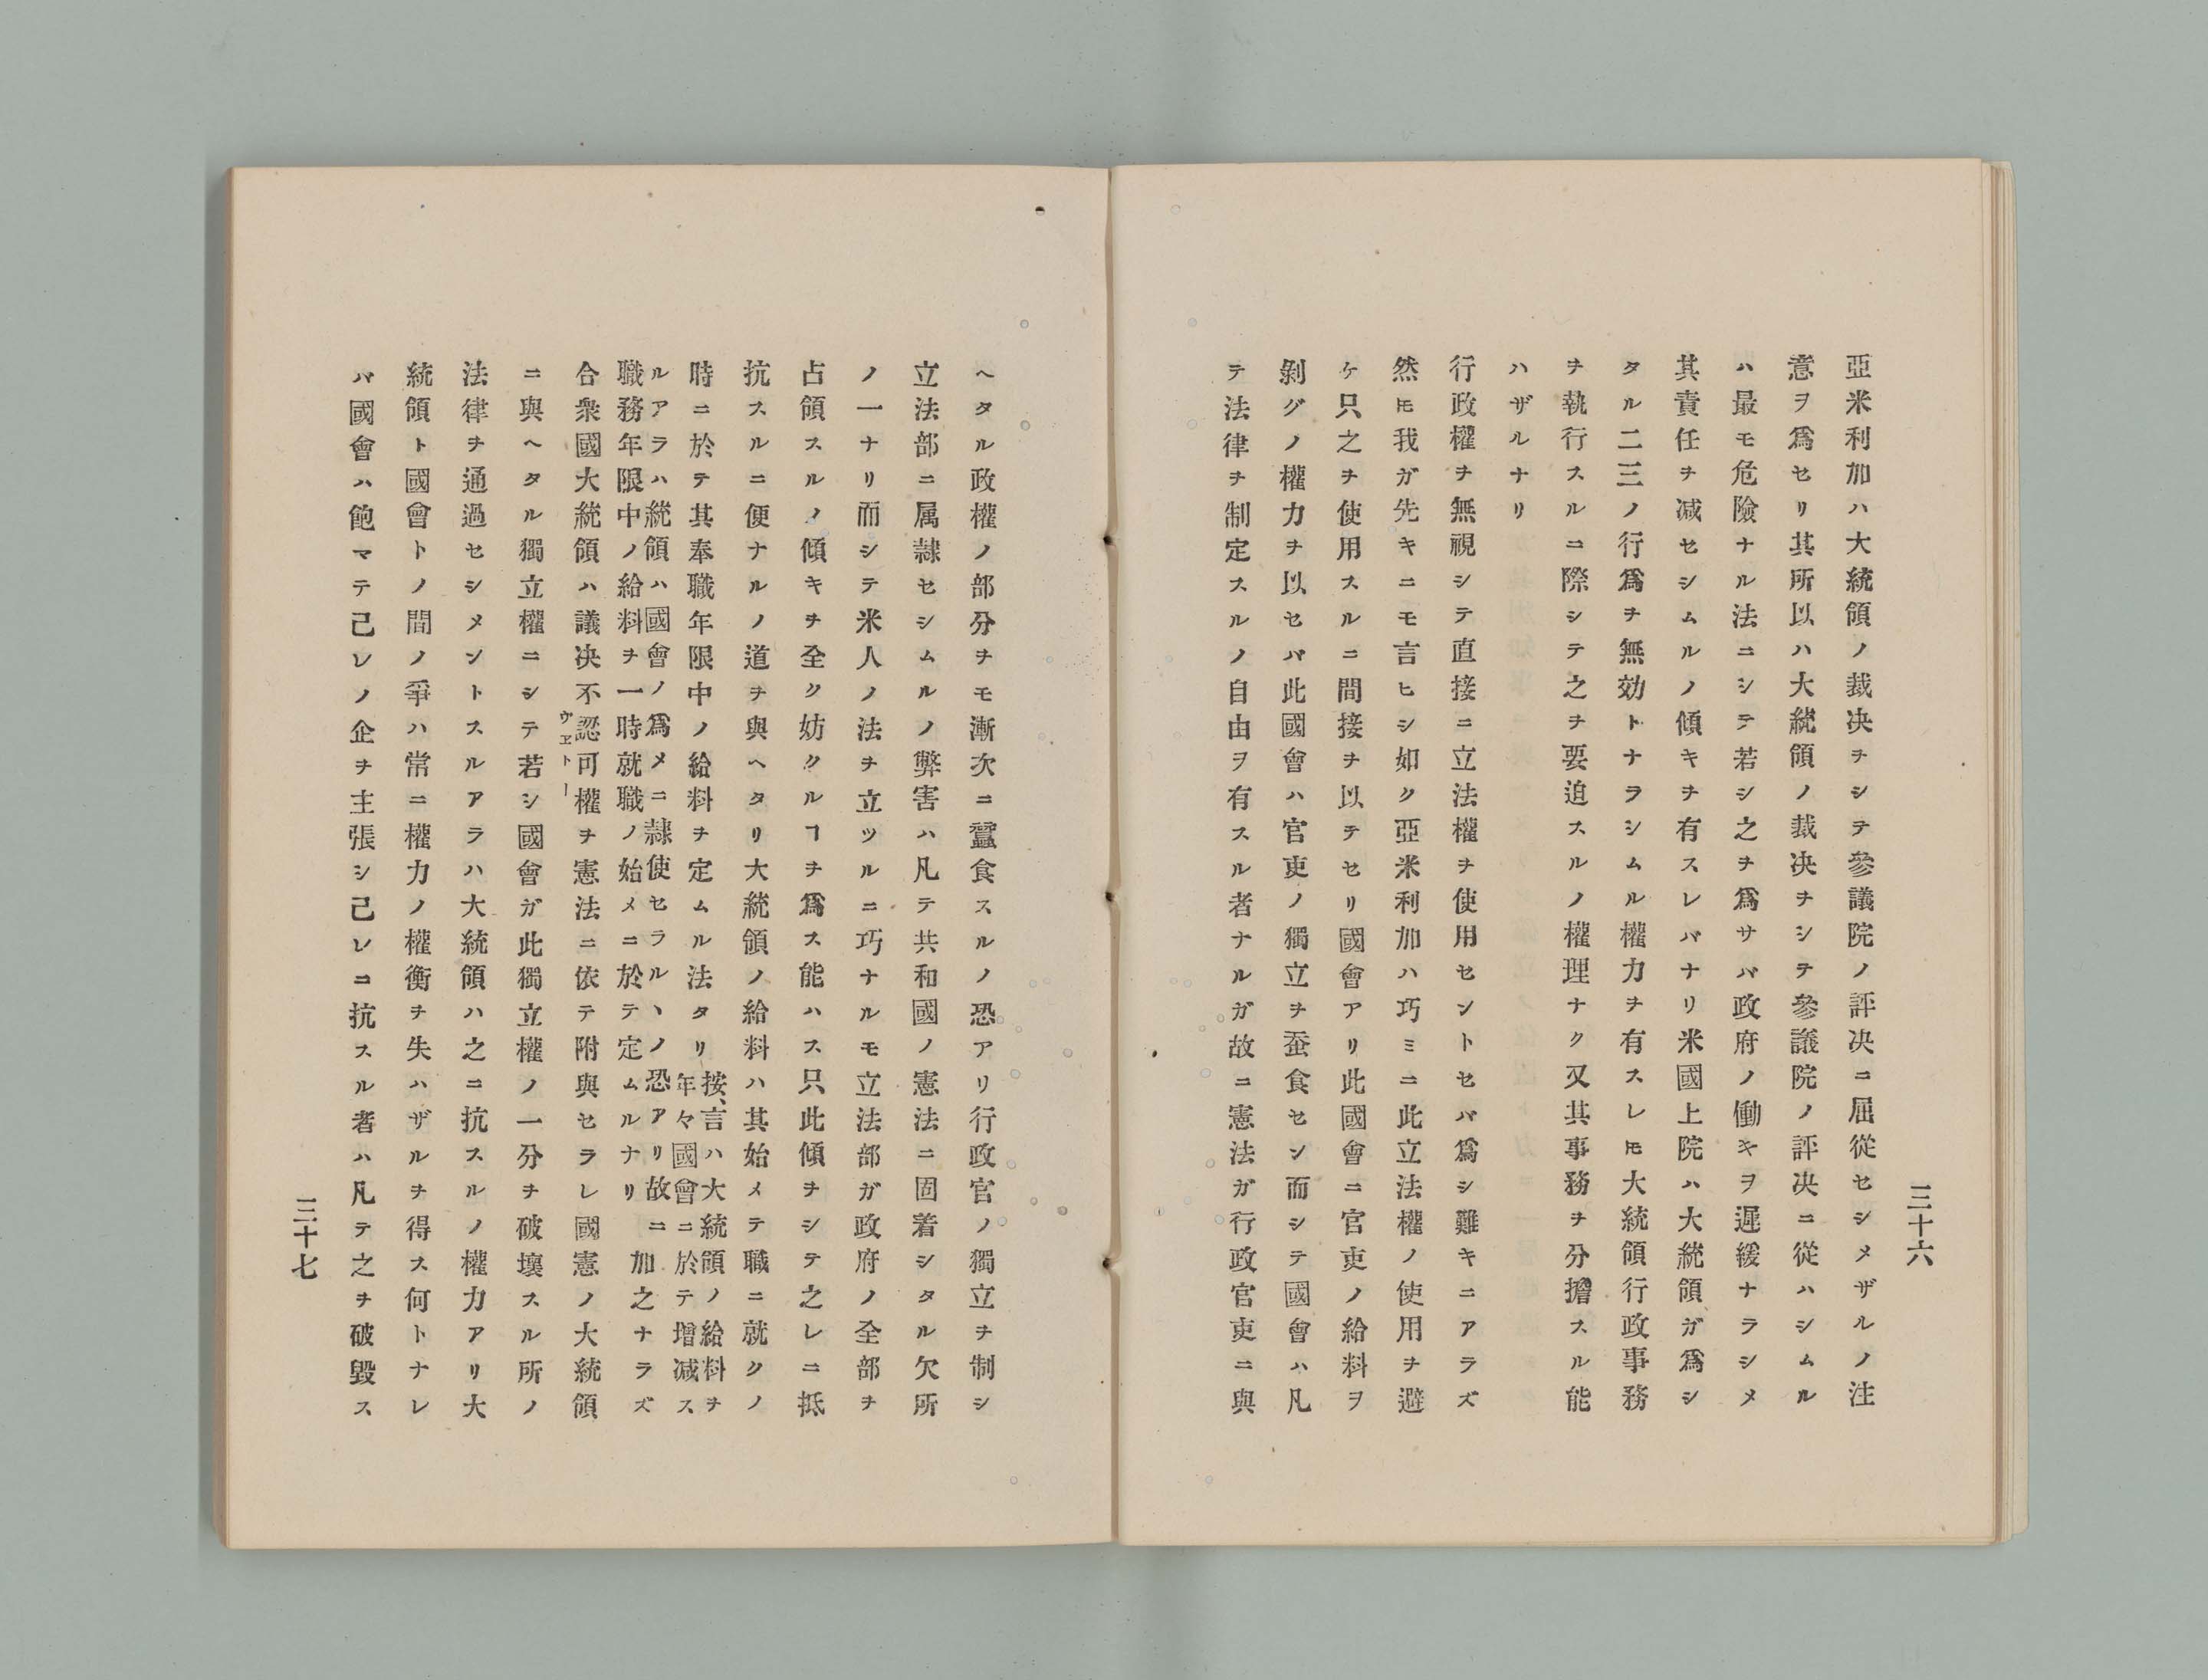 三十六
亞米利加ハ大統領ノ裁决ヲシテ參議院ノ評决ニ屈從セシメザルノ注
意ヲ爲セリ其所以ハ大統領ノ裁决ヲシテ參議院ノ評决ニ從ハシムル
ハ最モ危險ナル法ニシテ若シ之ヲ爲サバ政府ノ働キヲ遲緩ナラシメ
其責任ヲ减セシムルノ傾キヲ有スレバナリ米國上院ハ大統領ガ爲シ
タル二三ノ行爲ヲ無効トナラシムル權力ヲ有スレ𪜈大統領行政事務
ヲ執行スルニ際シテ之ヲ要迫スルノ權理ナク又其事務ヲ分擔スル能
ハザルナリ
行政權ヲ無視シテ直接ニ立法權ヲ使用セントセバ爲シ難キニアラズ
然𪜈我ガ先キニモ言ヒシ如ク亞米利加ハ巧ミニ此立法權ノ使用ヲ避
ケ只之ヲ使用スルニ間接ヲ以テセリ國會アリ此國會ニ官吏ノ給料ヲ
剝グノ權力ヲ以セバ此國會ハ官吏ノ獨立ヲ蚕食セン而シテ國會ハ凡
テ法律ヲ制定スルノ自由ヲ有スル者ナルガ故ニ憲法ガ行政官吏ニ與
ヘタル政權ノ部分ヲモ漸次ニ蠶食スルノ恐アリ行政官ノ獨立ヲ制シ
立法部ニ属隷セシムルノ弊害ハ凡テ共和國ノ憲法ニ固着シタル欠所
ノ一ナリ而シテ米人ノ法ヲ立ツルニ巧ナルモ立法部ガ政府ノ全部ヲ
占領スルノ傾キヲ全ク妨クルヿヲ爲ス能ハス只此傾ヲシテ之レニ抵
抗スルニ便ナルノ道ヲ與ヘタリ大統領ノ給料ハ其始メテ職ニ就クノ
時ニ於テ其奉職年限中ノ給料ヲ定ムル法タリ
按、言ハ大統領ノ給料ヲ
年々國會ニ於テ增减ス
ルアラハ統領ハ國會ノ爲メニ隷使セラルヽノ恐アリ故ニ
職務年限中ノ給料ヲ一時就職ノ始メニ於テ定ムルナリ
加之ナラズ
合衆國大統領ハ議决不認可權ヲ憲法ニ依テ附與セラレ國憲ノ大統領
ヴエトー
ニ與ヘタル獨立權ニシテ若シ國會ガ此獨立權ノ一分ヲ破壞スル所ノ
法律ヲ通過セシメントスルアラハ大統領ハ之ニ抗スルノ權力アリ大
統領ト國會トノ間ノ爭ハ常ニ權力ノ權衡ヲ失ハザルヲ得ス何トナレ
バ國會ハ飽マテ己レノ企ヲ主張シ己レニ抗スル者ハ凡テ之ヲ破毀ス
三十七